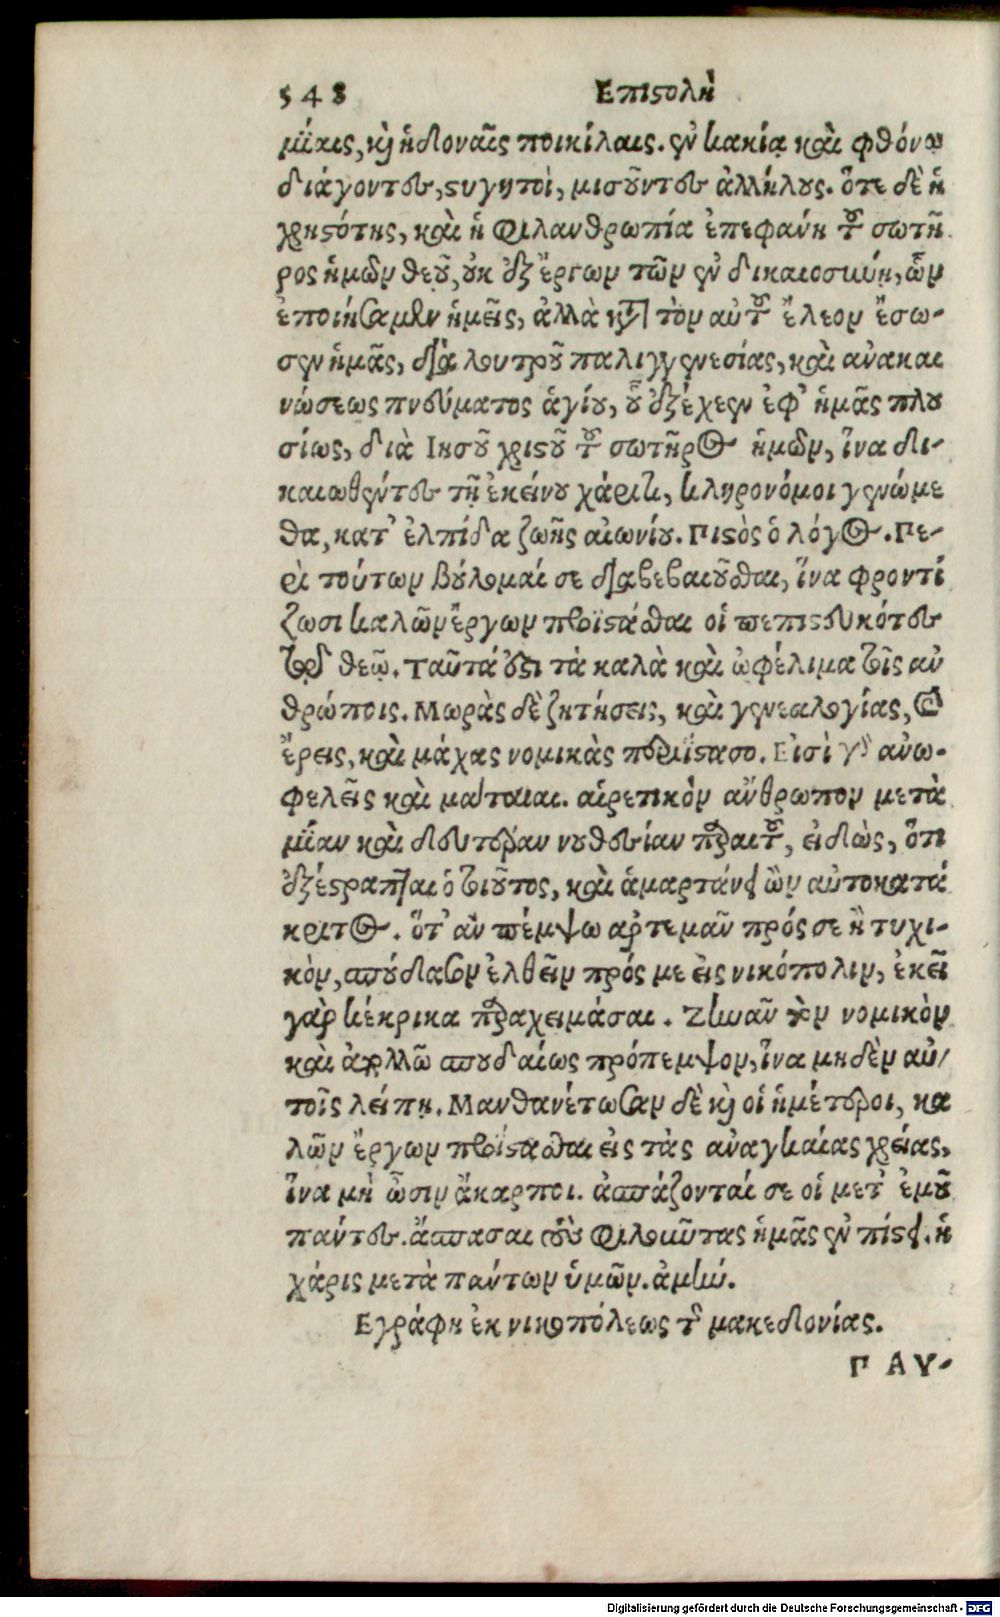 548 Επιστολὴ
μίαις, καὶ ἡδοναῖς ποικίλαις. ἐν κακίᾳ καὶ φθόνῳ
διάγοντες, στυγητοὶ, μισοῦντες ἀλλήλους. ὅτε δὲ ἡ
χρηστότης, καὶ ἡ φιλανθρωπία ἐπεφάνη τοῦ σωτῆ
ρος ἡμῶν θεοῦ, οὐκ ἐξ ἔργων τῶν ἐν δικαιοσύνῃ, ὧν
ἐποιήσαμεν ἡμεῖς, ἀλλὰ κατὰ τὸν αὐτοῦ ἔλεον ἔσω-
σεν ἡμᾶς, διὰ λουτροῦ παλιγγενεσίας, καὶ ἀνακαι
νώσεως πνεύματος ἁγίου, οὗ ἐξέχεεν ἐφ' ἡμᾶς πλου
σίως, διὰ Ιησοῦ χριστοῦ τοῦ σωτῆρος ἡμῶν, ἵνα δι-
καιωθέντες τῇ ἐκείνου χάριτι, κληρονόμοι γενώμε
θα, κατ' ἐλπίδα ζωῆς αἰωνίου. Πιστὸς ὁ λόγος. Πε-
ρὶ τούτων βούλομαί σε διαβεβαιοῦσθαι, ἵνα φροντί
ζωσι καλῶν ἔργων προΐστασθαι οἱ πεπιστευκότες
τῷ θεῷ. Ταῦτά ἐστι τὰ καλὰ καὶ ὠφέλιμα τοῖς ἀν
θρώποις. Μωρὰς δὲ ζητήσεις, καὶ γενεαλογίας, καὶ
ἔρεις, καὶ μάχας νομικὰς περιΐστασο. Εἰσὶ γὰρ ἀνω-
φελεῖς καὶ μάταιαι. αἱρετικὸν ἄνθρωπον μετὰ
μίαν καὶ δευτέραν νουθεσίαν παραιτοῦ, εἰδὼς, ὅτι
ἐξέστραπται ὁ τοιοῦτος, καὶ ἁμαρτάνει ὢν αὐτοκατά
κριτος. ὅτ' ἂν πέμψω ἀρτεμᾶν πρός σε ἢ τυχι-
κὸν, σπούδασον ἐλθεῖν πρός με εἰς νικόπολιν, ἐκεῖ
γὰρ κέκρικα παραχειμάσαι. Ζηνᾶν τὸν νομικὸν
καὶ ἀπολλῶ σπουδαίως πρόπεμψον, ἵνα μηδὲν αὐ/
τοῖς λείπῃ. Μανθανέτωσαν δὲ καὶ οἱ ἡμέτεροι, κα
λῶν ἔργων προΐστασθαι εἰς τὰς ἀναγκαίας χρείας,
ἵνα μὴ ὦσιν ἄκαρποι. ἀσπάζονταί σε οἱ μετ' ἐμοῦ
πάντες. ἄσπασαι τοὺς φιλοῦντας ἡμᾶς ἐν πίστει. ἡ
χάρις μετὰ πάντων ὑμῶν. ἀμήν.
Εγράφη ἐκ νικοπόλεως τῆς μακεδονίας.
ΠΑΥ-
Digitalisierung gefördert durch die Deutsche Forschungsgemeinschaft - DFG